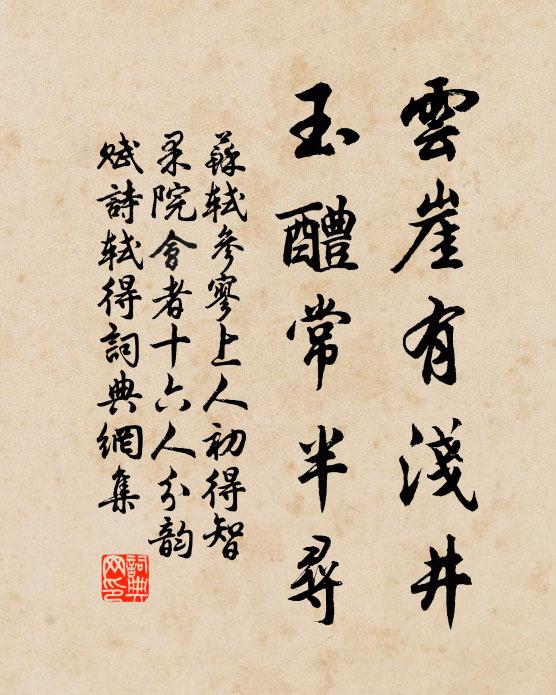 雲崖有淺井
玉醴常半尋
蘇軾參寥上人初得智
果院會者十六人分韵
賦詩軾得詞典網集
詞典网印